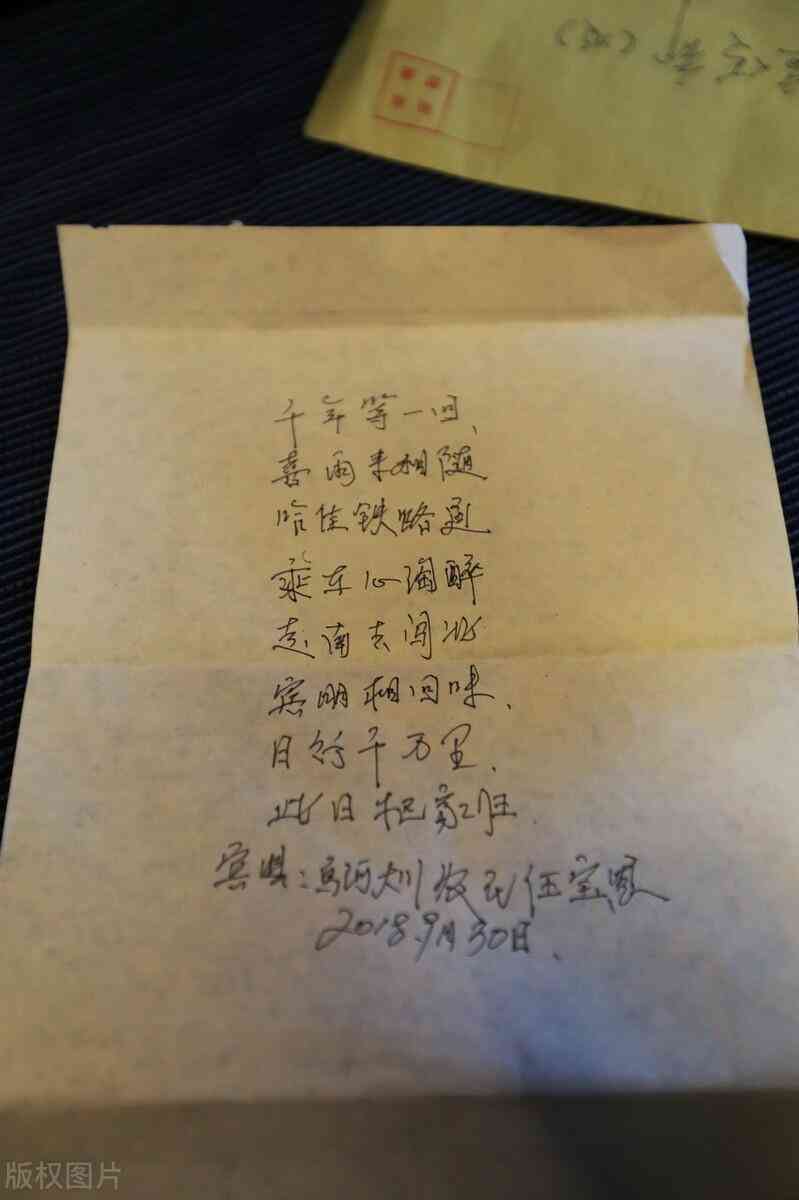 千年等一回、
喜雨来相随
哈佳铁路通
乘车心陶醉
走南去闯北
宾朋相回味、
日行千万里、
此日把家归
宾县:鸟河大川农民任宝
2018.9月30日、
版权图片